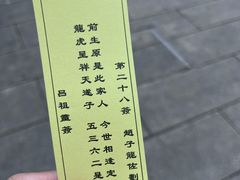 第二十八簽 趙子龍佐劉
前生原是此家人 今世相逢定
龍虎呈祥天遂子 五三六二是
呂祖靈簽